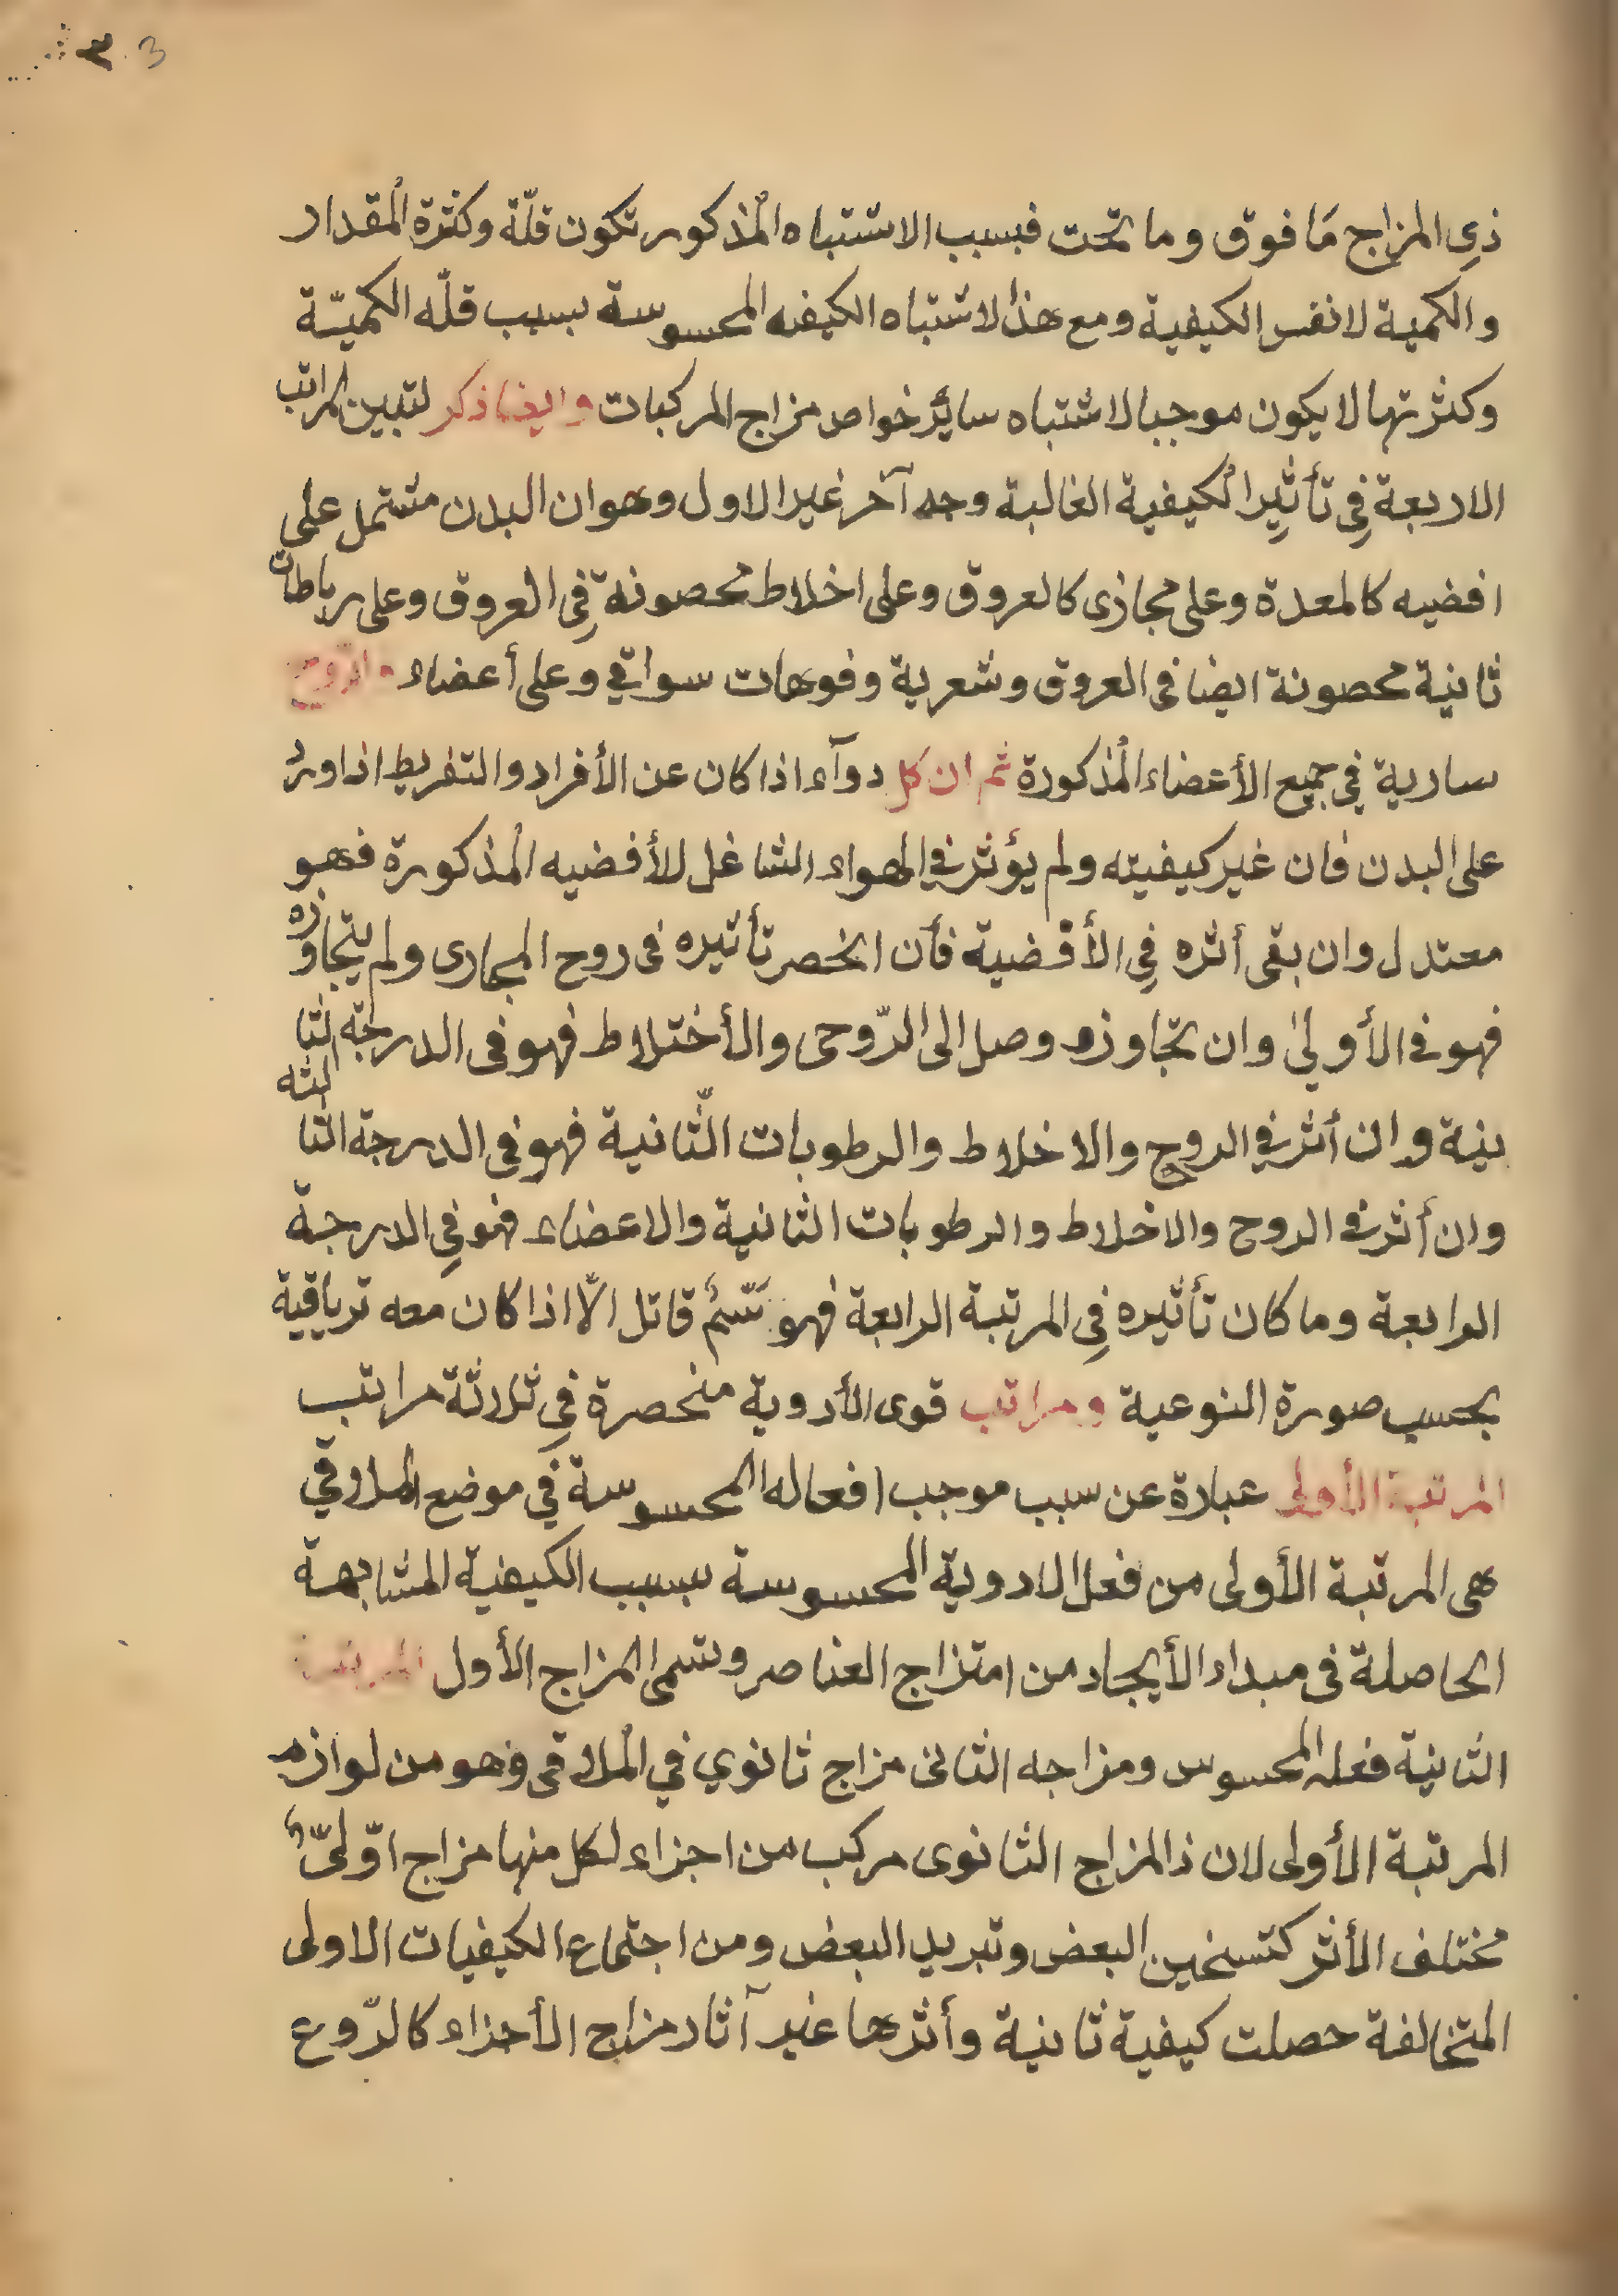 ٣ 3
ذي المزاج مَا فوق وما تحت فبسبب الاشتباه المذكور تكون قلّة وكثرة المقدار
والكمية لا نفس الكيفية ومع هذا لاشتباه الكيفه المحسوسة بسبب قلّه الكميّة
وكثرتها لا يكون موجبا لاشتباه سائر خواص مزاج المركبات وايضا ذكر لتبين المراتب
الاربعة فِي تأثيِر الكيفية الغالبة وجه آخر غير الاول وهو ان البدن مشتمل على
افضيه كالمعدة وعلى مجاذى كالعروق وعلى اخلاط محصونة فِي العروق وعلى رباطات
ثانية محصونة ايضا فى العروق وشعرية وفوهات سواقي وعلى أعضاء وارواح
سارية في جميع الأعضاء المذكورة ثم ان كل دوآء اذا كان عن الأفراد والتفريط اذا ورد
على البدن فان غير كيفيته ولم يؤثر في الهواء الشاغل للأفضيه المذكورة فهو
معتدل وان بقى أثره فِي الأفضية فأن انحصر تأثيره فى روح المجارى ولم يتجاوزه
فهو في الأولىٰ وان تجاوزه وصل الى الرّوحى والأختلاط فهو فى الدرجة الثا
نية وان أثر في الروح والاخلاط والرطوبات الثّانية فهو فى الدرجة الثالثه
وان أثر في الروح والاخلاط والرطوبات الثانية والاعضاء فهو فِي الدرجة
الرابعة وما كان تأثيره فِي المرتبة الرابعة فهو سَّمُّ قاتل الّا اذا كان معه ترياقية
بحسب صورة النوعية ومراتب قوى الأدوية منحصرة فِي ثلاثة مراتب
المرتبة الأولى عبارة عن سبب موجب افعاله المحسوسة في موضع الملاوقي
هى المرتبة الأولى من فعل الادوية المحسوسة بسبب الكيفية المتشابهة
الحاصلة فى مبداء الأيجاد من امتزاج العناصر وتسمى المزاج الأول المرتبة
الثانية فعله المحسوس ومزاجه الثانى مزاج ثانوي في الملاقى وهو من لوازم
المرتبة الأولى لان ذالمزاج الثانوى مركب من اجزاء لكل منها مزاج اوّلىّ
مختلف الأثر كتسخين البعض وتبريد البعض ومن اجتماع الكيفيات الاولى
المتخالفة حصلت كيفية ثانية وأثرها غير آثار مزاج الأجزاء كالرّوع